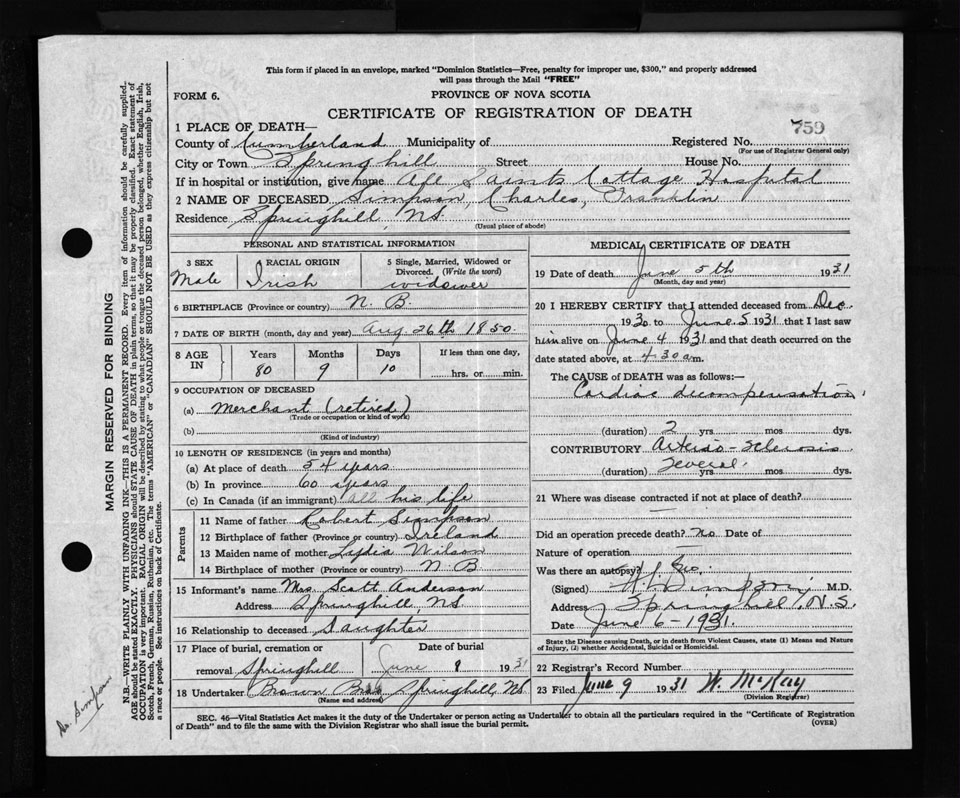 This form if placed in an envelope, marked "Dominion Statistics—Free, penalty for improper use, $300," and properly addressed
will pass through the Mail "FREE"
FORM 6.
PROVINCE OF NOVA SCOTIA
CERTIFICATE OF REGISTRATION OF DEATH
759
1 PLACE OF DEATH—
County of Cumberland Municipality of Registered No.
(For use of Registrar General only)
City or Town Springhill Street House No.
If in hospital or institution, give name All Saints Cottage Hospital
2 NAME OF DECEASED Simpson, Charles, Franklin
Residence Springhill, N.S.
(Usual place of abode)
PERSONAL AND STATISTICAL INFORMATION
3 SEX
Male
RACIAL ORIGIN
Irish
5 Single, Married, Widowed or
Divorced. (Write the word)
widower
6 BIRTHPLACE (Province or country) N. B.
7 DATE OF BIRTH (month, day and year) Aug 26th 1850
8 AGE IN
Years Months Days If less than one day,
80 9 10 hrs. or min.
9 OCCUPATION OF DECEASED
(a) Merchant (retired)
(Trade or occupation or kind of work)
(b)
(Kind of industry)
10 LENGTH OF RESIDENCE (in years and months)
(a) At place of death 54 years
(b) In province 60 years
(c) In Canada (if an immigrant) all his life
Parents
11 Name of father Robert Simpson
12 Birthplace of father (Province or country) Ireland
13 Maiden name of mother Lydia Wilson
14 Birthplace of mother (Province or country) N B
15 Informant's name Mrs. Scott Anderson
Address Springhill, N.S.
16 Relationship to deceased Daughter
17 Place of burial, cremation or Date of burial
removal Springhill June 8 1931
18 Undertaker Brown Bros Springhill, N.S.
(Name and address)
MEDICAL CERTIFICATE OF DEATH
19 Date of death June 5th 1931
(Month, day and year)
20 I HEREBY CERTIFY that I attended deceased from Dec.
1930 to June 5 1931 that I last saw
him alive on June 4 1931 and that death occurred on the
date stated above, at 4.30 a m.
The CAUSE of DEATH was as follows:—
Cardiac decompensation
(duration) 2 yrs. mos dys.
CONTRIBUTORY Arterio-Sclerosis
(duration) Several yrs. mos. dys.
21 Where was disease contracted if not at place of death?
Did an operation precede death? no Date of
Nature of operation
Was there an autopsy?
(Signed) Simpson, M.D.
Address Springhill, N.S.
Date June 6-1931.
State the Disease causing Death, or in death from Violent Causes, state (1) Means and Nature
of Injury, (2) whether Accidental, Suicidal or Homicidal.
22 Registrar's Record Number
23 Filed June 9 1931 W. McKay
(Division Registrar)
SEC. 46—Vital Statistics Act makes it the duty of the Undertaker or person acting as Undertaker to obtain all the particulars required in the "Certificate of Registration
of Death" and to file the same with the Division Registrar who shall issue the burial permit.
(OVER)
MARGIN RESERVED FOR BINDING
N.B.—WRITE PLAINLY WITH UNFADING INK—THIS IS A PERMANENT RECORD. Every item of information should be carefully supplied.
AGE should be stated EXACTLY. PHYSICIANS should STATE CAUSE OF DEATH in plain terms, so that it may be properly classified. Exact statement of
OCCUPATION is very important. RACIAL ORIGIN will be described by stating to what people or tongue the deceased person belonged, whether English, Irish,
Scotch, French, German, Russian, Ruthenian, etc. The terms "AMERICAN" or "CANADIAN" SHOULD NOT BE USED as they express citizenship but not
a race or people. See instructions on back of Certificate.
Dr. Simpson